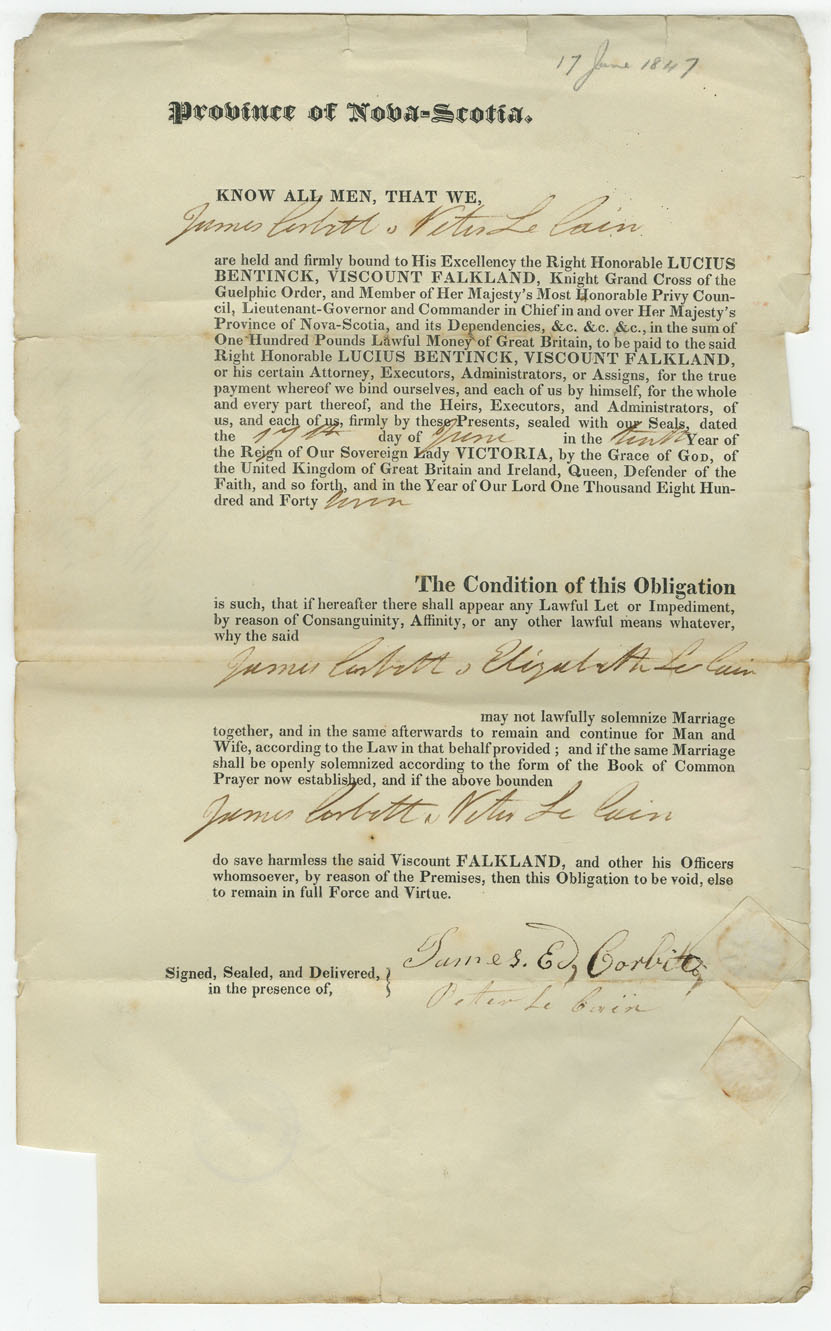 17 June 1847
Province of Nova-Scotia.
KNOW ALL MEN, THAT WE,
James Corbett & Peter Le Cain
are held and firmly bound to His Excellency the Right Honorable LUCIUS
BENTINCK, VISCOUNT FALKLAND, Knight Grand Cross of the
Guelphic Order, and Member of Her Majesty's Most Honorable Privy Coun-
cil, Lieutenant-Governor and Commander in Chief in and over Her Majesty's
Province of Nova-Scotia, and its Dependencies, &c. &c. &c., in the sum of
One Hundred Pounds Lawful Money of Great Britain, to be paid to the said
Right Honorable LUCIUS BENTINCK, VISCOUNT FALKLAND,
or his certain Attorney, Executors, Administrators, or Assigns, for the true
payment whereof we bind ourselves, and each of us by himself, for the whole
and every part thereof, and the Heirs, Executors, and Administrators, of
us, and each of us, firmly by these Presents, sealed with our Seals, dated
the 17th day of June in the tenth Year of
the Reign of Our Sovereign Lady VICTORIA, by the Grace of GOD, of
the United Kingdom of Great Britain and Ireland, Queen, Defender of the
Faith, and so forth, and in the Year of Our Lord One Thousand Eight Hun-
dred and Forty seven
The Condition of this Obligation
is such, that if hereafter there shall appear any Lawful Let or Impediment,
by reason of Consanguinity, Affinity, or any other lawful means whatever,
why the said
James Corbett & Elizabeth Le Cain
may not lawfully solemnize Marriage
together, and in the same afterwards to remain and continue for Man and
Wife, according to the Law in that behalf provided ; and if the same Marriage
shall be openly solemnized according to the form of the Book of Common
Prayer now established, and if the above bounden
James Corbett & Peter Le Cain
do save harmless the said Viscount FALKLAND, and other his Officers
whomsoever, by reason of the Premises, then this Obligation to be void, else
to remain in full Force and Virtue.
James. Ed, Corbitt
Signed, Sealed, and Delivered,
in the presence of,
Peter Le Cain